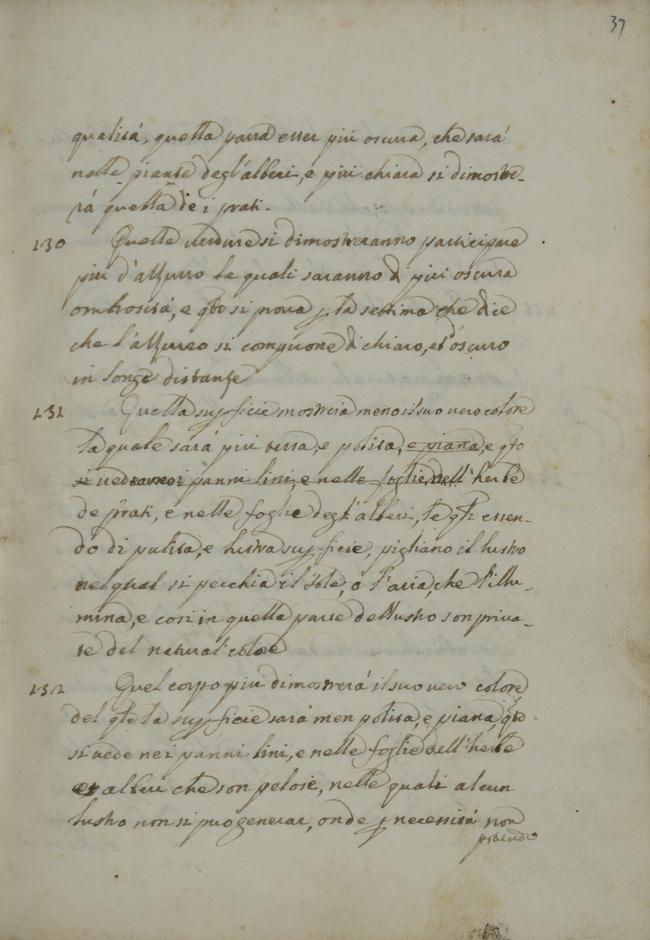 37
qualità, quella parrà esser più oscura, che sarà
nelle piante degl'alberi, e più chiara si dimostre-
rà quella de i prati.
130 Quelle verdure si dimostreranno participare
più d'azzurro le quali saranno di più oscura
ombrosità, e qto si prova p la settima che dice
che l'azzurro si compuone di chiaro, et d'oscuro
in longe distanze
131 Quella supficie mostrerà meno il suo vero colore
la quale sarà più tersa, e polita, e piana, e qto
si vedranno i panni lini, e nelle foglie, nell'herbe
de prati, e nelle foglie degl'alberi, le qli essen-
do di pulita, e lustra supficie, pigliano il lustro
nel qual si specchia il sole, o l'aria, che l'illu-
mina, e così in quella parte del lustro son priva-
te del natural colore
132 Quel corpo più dimostrerà il suo vero colore
del qle la supficie sarà men polita, e piana, qto
si vede nei panni lini, e nelle foglie dell'herbe
et alberi che son pelose, nelle quali alcun
lustro non si puo generar, onde p necessità non
potendo